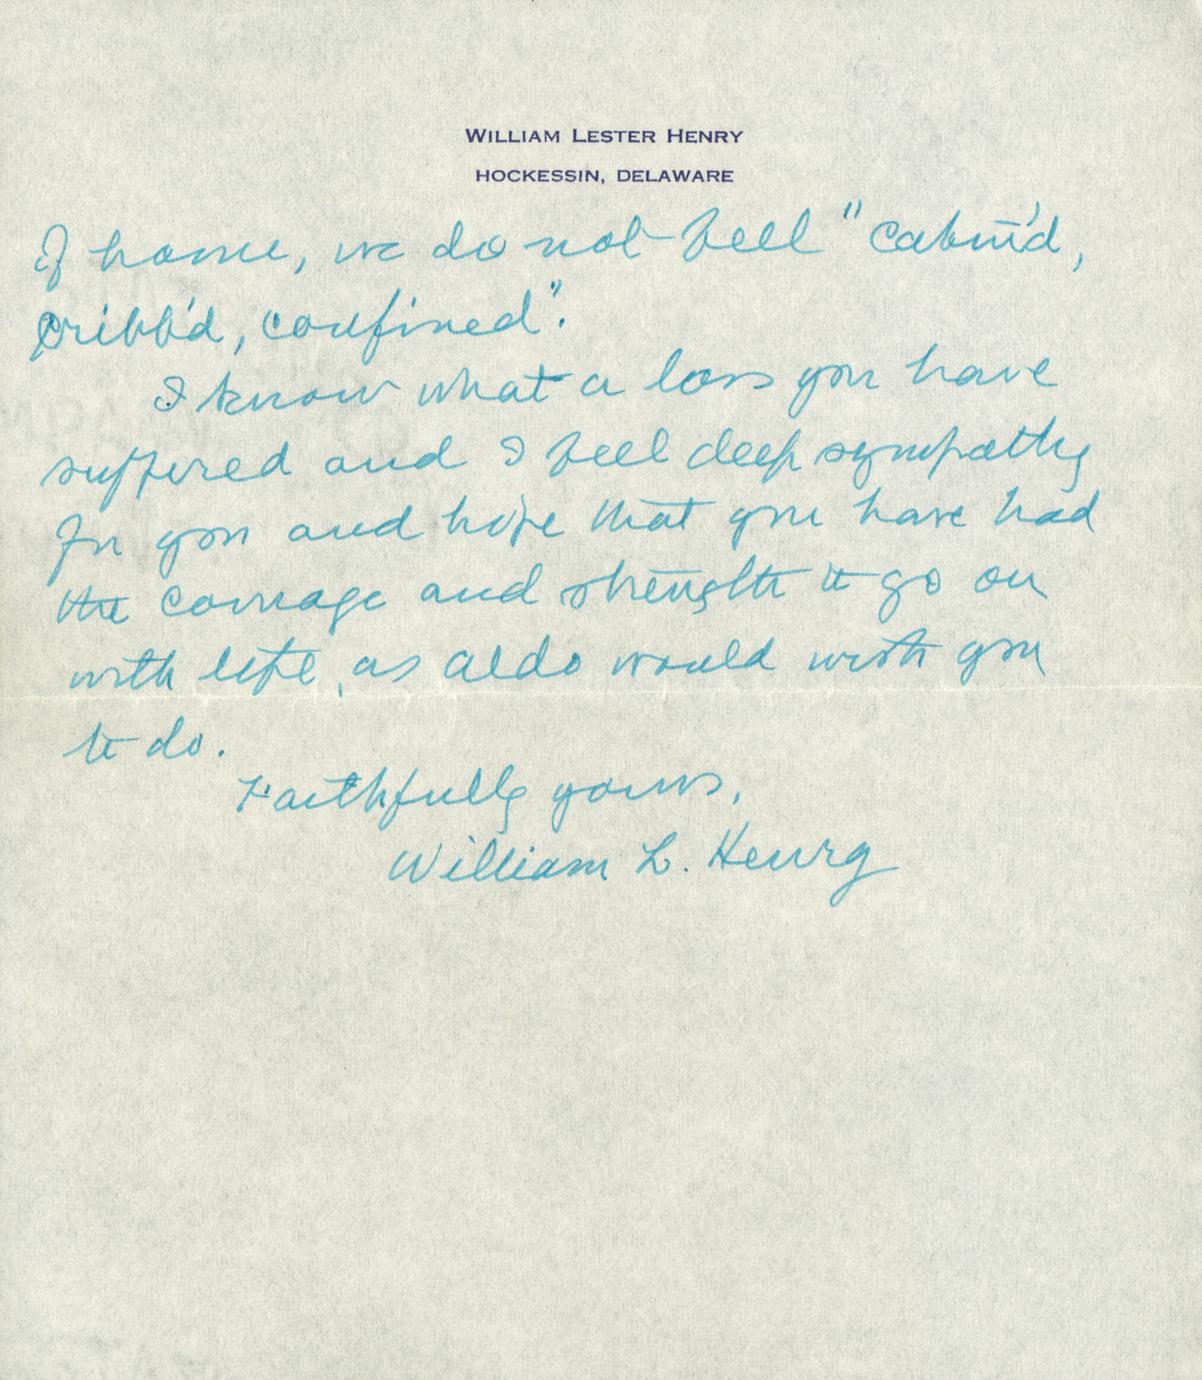 WILLIAM LESTER HENRY
HOCKESSIN, DELAWARE
of home, we do not feel "cabin'd,
cribb'd, confined".
I know what a loss you have
suffered and I feel deep sympathy
for you and hope that you have had
the courage and strength to go on
with life, as Aldo would wish you
to do.
Faithfully yours,
William L. Henry